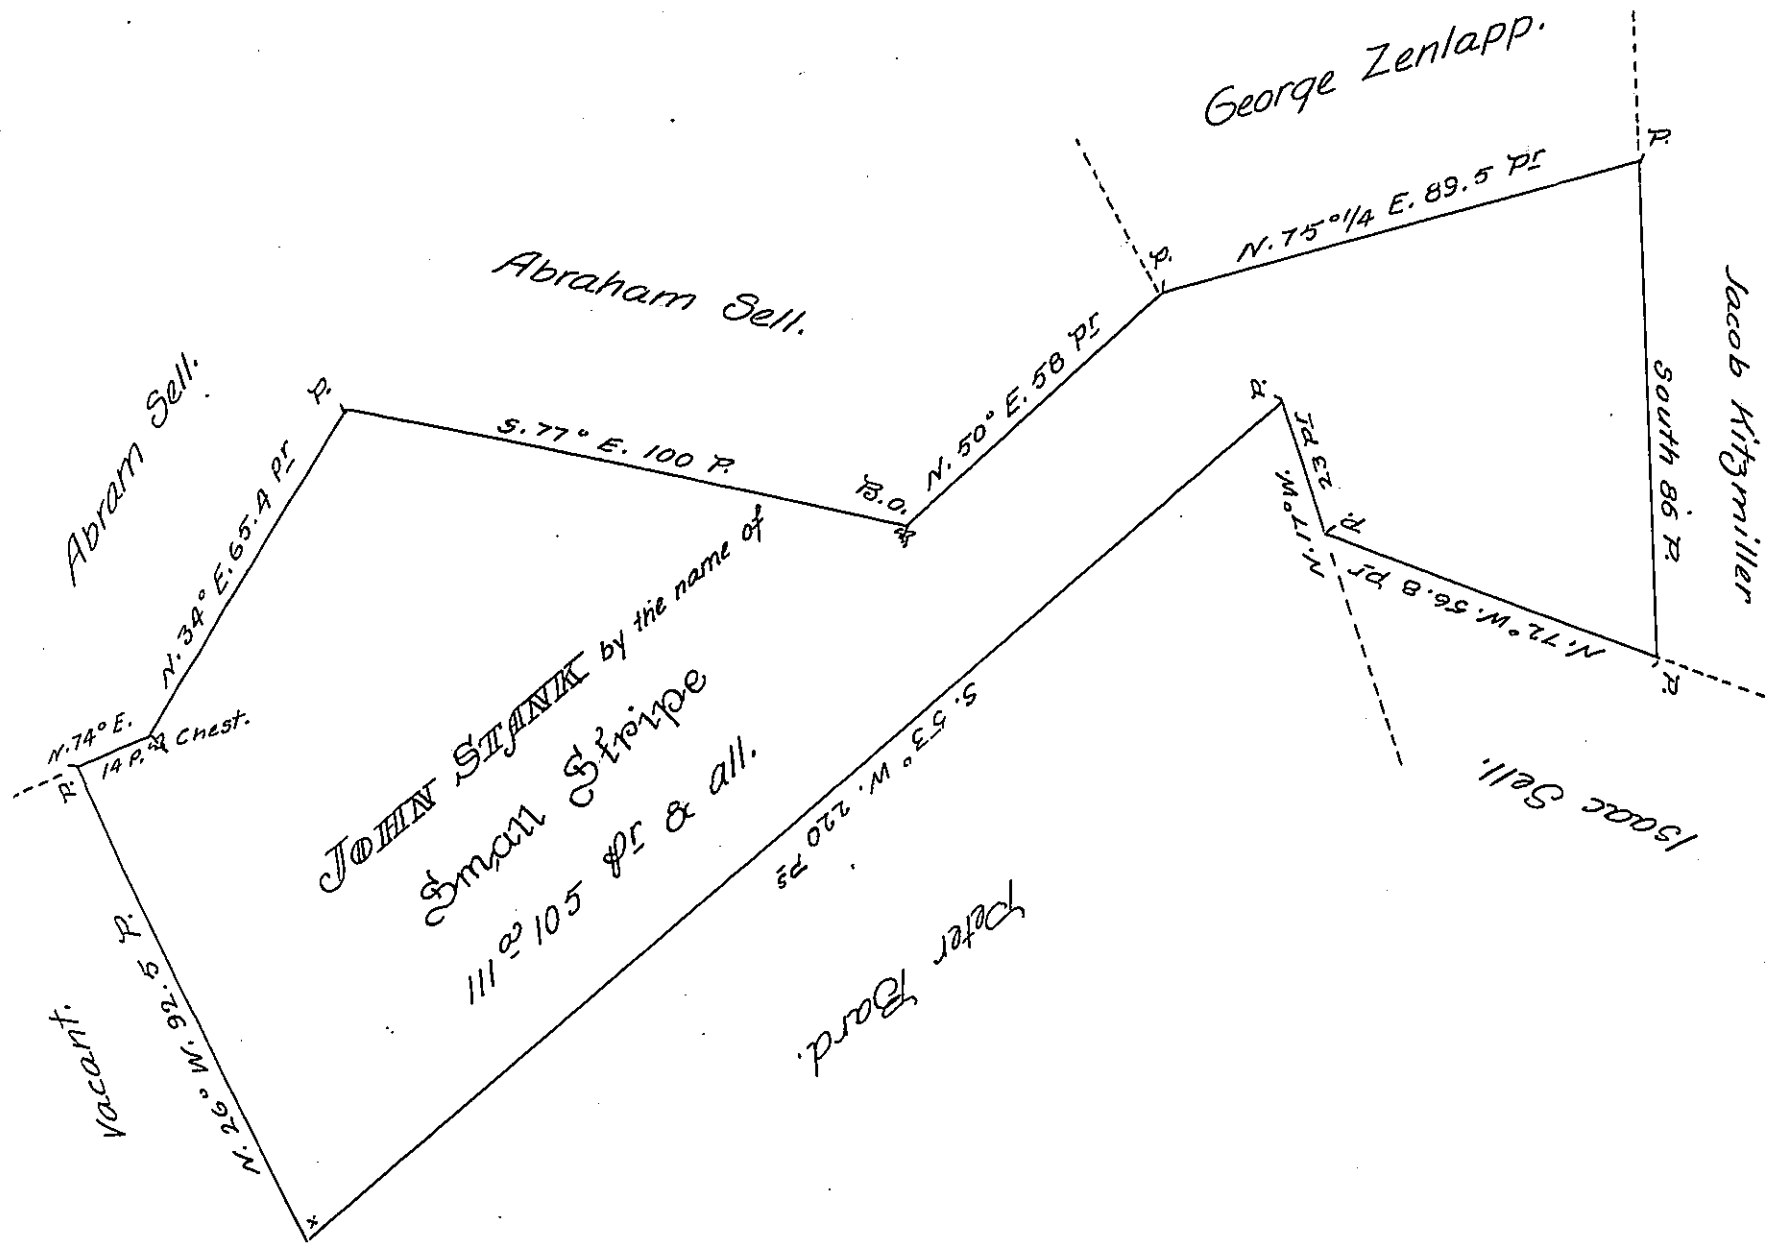 George Zenlapp.
P.
N. 75°1/4 E. 89.5 Pr
P.
Abraham Sell.
Jacob Kitzmiller
N. 50° E. 58 Pr
Abram Sell.
P.
S. 77° E. 100 P.
B.O.
South 86 P.
P.
23 Pr
N. 17° W.
P.
N. 72° W. 56.8 Pr
P.
N. 34° E. 65.4 Pr
N. 74° E.
14 P.
Chest.
P.
JOHN STANK by the name of
Small Stripe
111 a 105 pr & all.
S. 53° W. 220 Ps
Isaac Sell.
Peter Bard.
N. 26° W. 92.5 P.
Vacant.
x